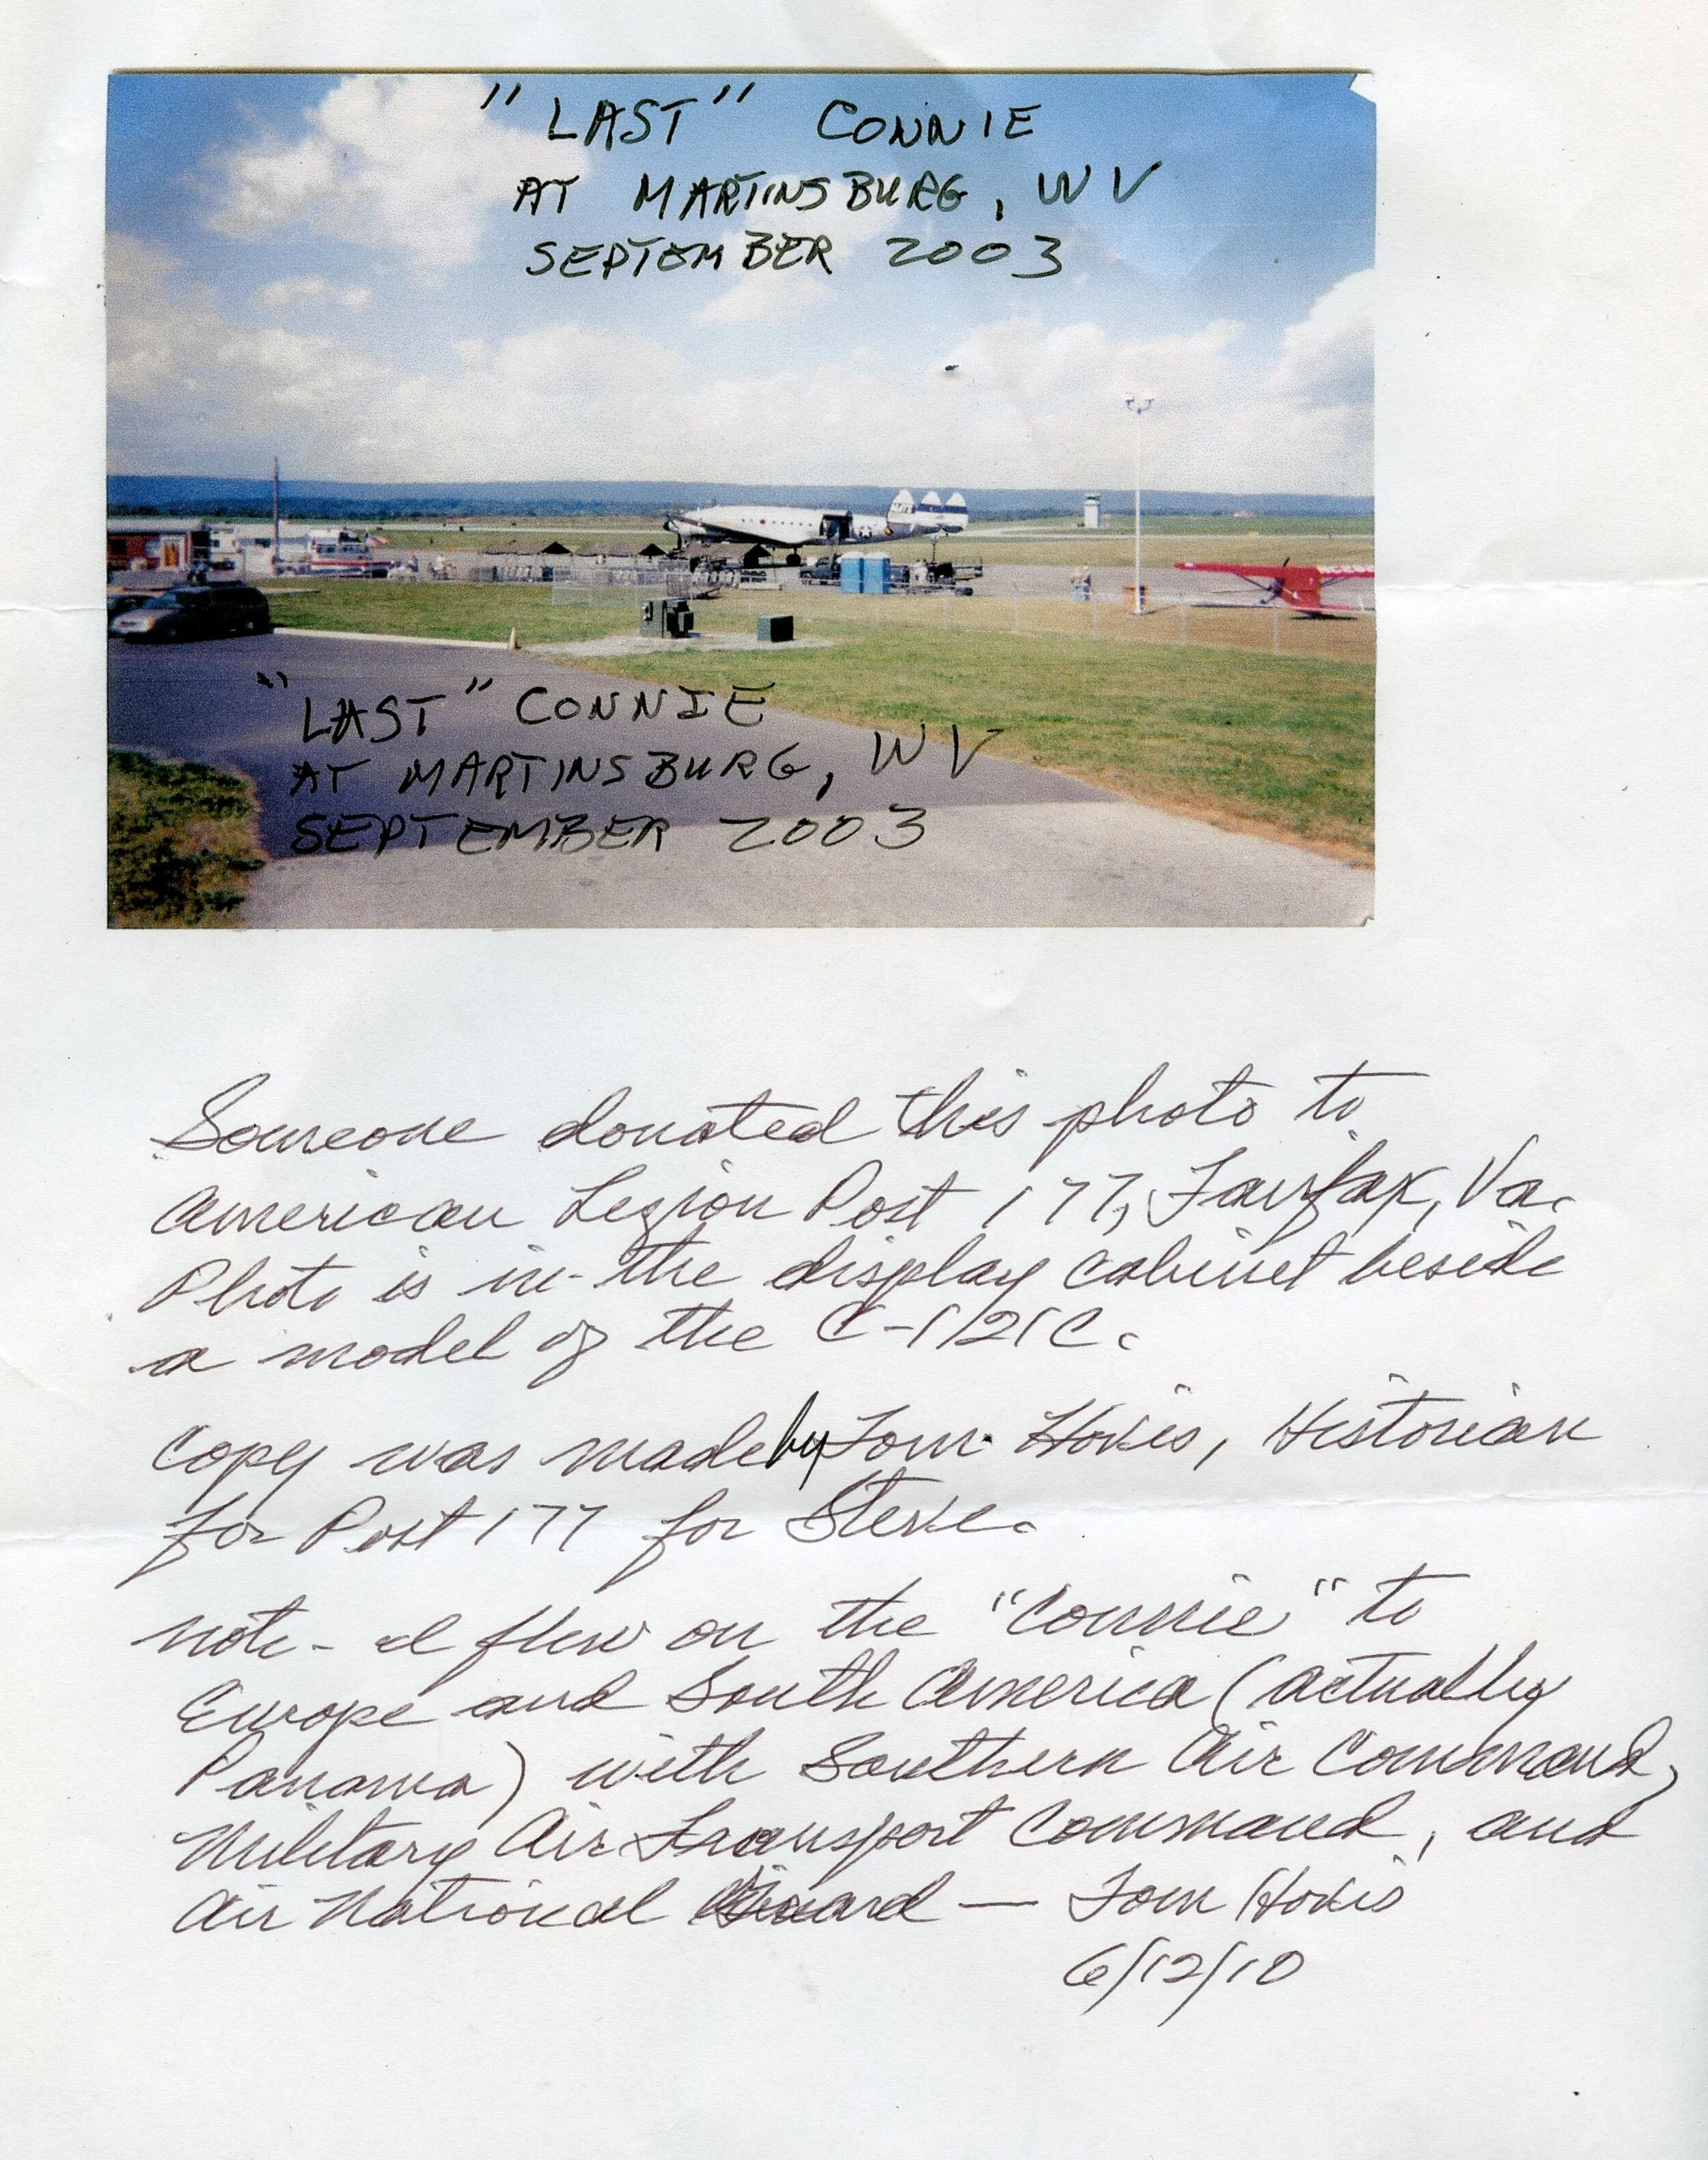 "LAST" CONNIE
AT MARTINSBURG, WV
SEPTEMBER 2003
"LAST" CONNIE
AT MARTINSBURG, WV
SEPTEMBER 2003
Someone donated this photo to
American Legion Post 177, Fairfax, Va.
Photo is in the display cabinet beside
a model of the C-121C.
Copy was made by Tom Hovis, Historian
for Post 177 for Steve.
note - I flew on the "Connie" to
Europe and South America (actually
Panama) with Southern Air Command,
Military Air Transport Command, and
Air National Guard — Tom Hovis
6/12/10